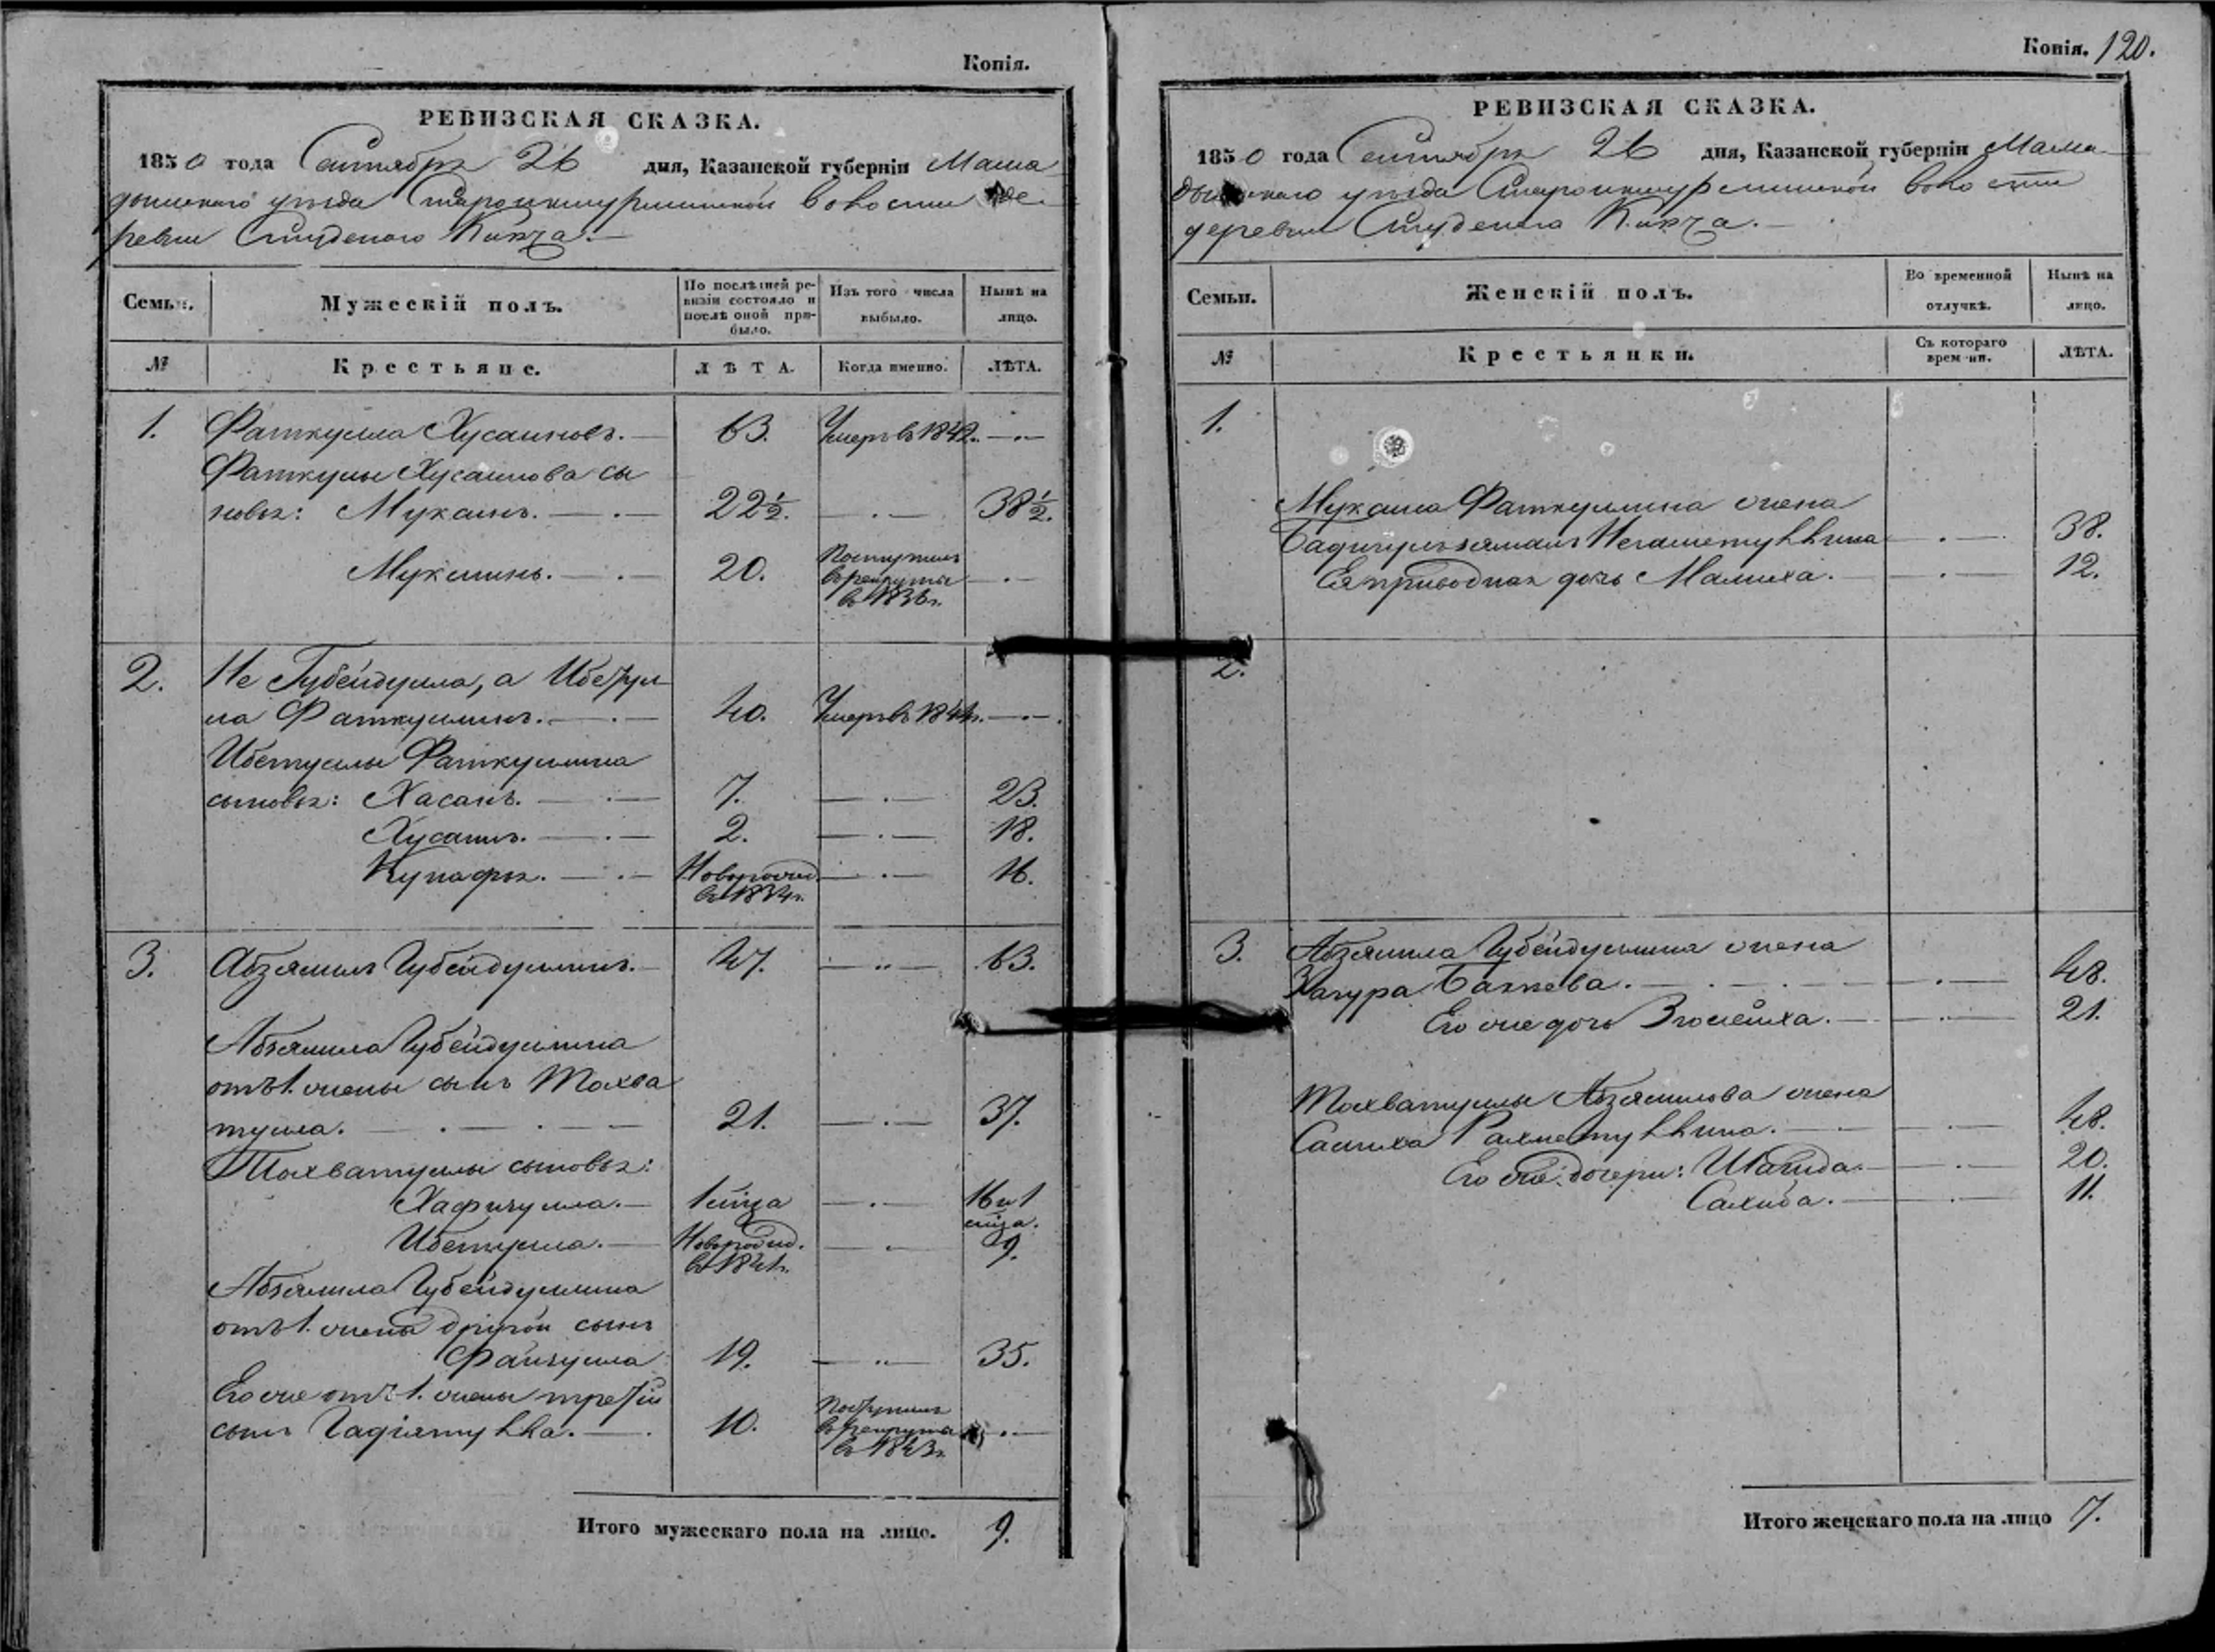 Копія.
РЕВИЗСКАЯ СКАЗКА.
1850 года Сентября 26 дня, Казанской губерніи Мама
дышскаго уѣзда Староикшурминской волости де
ревни Студеного Кикча.
Семьи. Мужескій полъ. По послѣдней ре-
визіи состояло и
послѣ оной при-
было. Изъ того числа
выбыло. Нынѣ на
лицо.
№ Крестьяне. ЛѢТА. Когда именно. ЛѢТА.
1. Фаткулла Хусаиновъ. 63. Умеръ въ 1842.
Фаткуллы Хусаинова сы
новья: Мукаинъ. 22½. 38½.
Мукминъ. 20. Поступилъ
въ рекруты
въ 1836г.
2. Не Губейдулла, а Ибетул
ла Фаткуллинъ. 40. Умеръ въ 1844г.
Ибетуллы Фаткуллина
сыновья: Хасанъ. 7. 23.
Хусаинъ. 2. 18.
Новорожд.
въ 1834г. 16.
3. Абзялилъ Губейдуллинъ. 47. 63.
Абзялила Губейдуллина
отъ 1. жены сынъ Тохва
тулла. 21. 37.
Тохватуллы сыновья:
Хафизулла. 1 м̃ца 16 и 1
м̃ца.
Ибетулла. Новорожд.
въ 1841г. 9.
Абзялила Губейдуллина
отъ 1. жены другой сынъ
Файзулла 19. 35.
Его же отъ 1. жены третій
сынъ Гадіятулла. 10. Поступилъ
въ рекруты
въ 1843г.
Итого мужескаго пола на лицо. 9.
Копія. 120.
РЕВИЗСКАЯ СКАЗКА.
1850 года Сентября 26 дня, Казанской губерніи Мама
дышскаго уѣзда Староикшурминской волости
деревни Студенаго Кикча.
Семьи. Женскій полъ. Во временной
отлучкѣ. Нынѣ на
лицо.
№ Крестьянки. Съ котораго
времени. ЛѢТА.
1.
Мукаина Фаткуллина жена
38.
Ея приводная дочь Малиха. 12.
2.
3. Абзялила Губейдуллина жена
Загура Бакіева. 48.
Его же дочь Зюлейха. 21.
Тохватуллы Абзялилова жена
Салиха Рахметуллина. 48.
Его же дочери: Шагида. 20.
Сахиба. 11.
Итого женскаго пола на лицо 7.